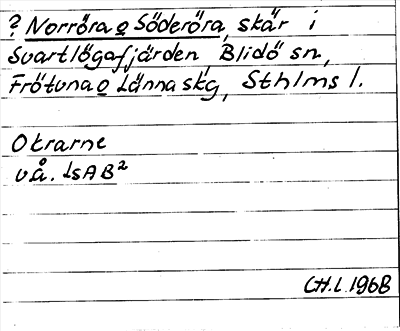 ? Norröra o Söderöra, skär i
Svartlögafjärden, Blidö sn,
Frötuna o Länna skg, Sthlms l.
Okrarne
vå. LsAB²
CH.L 1968